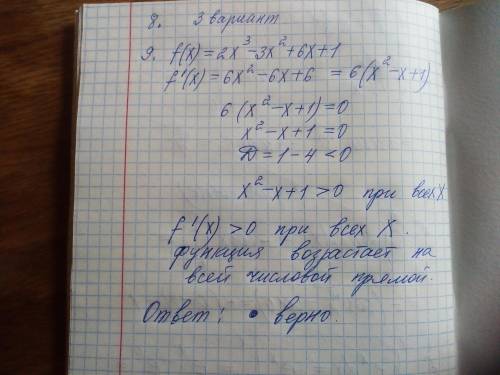 8. 3 вариант
9. f(x) = 2x³-3x²+6x+1
f'(x) = 6x²-6x+6 = 6(x²-x+1)
6(x²-x+1)=0
x²-x+1=0
D=1-4<0
x²-x+1>0 при всех x
f'(x)>0 при всех x.
функция возрастает на
всей числовой прямой.
Ответ: • верно.